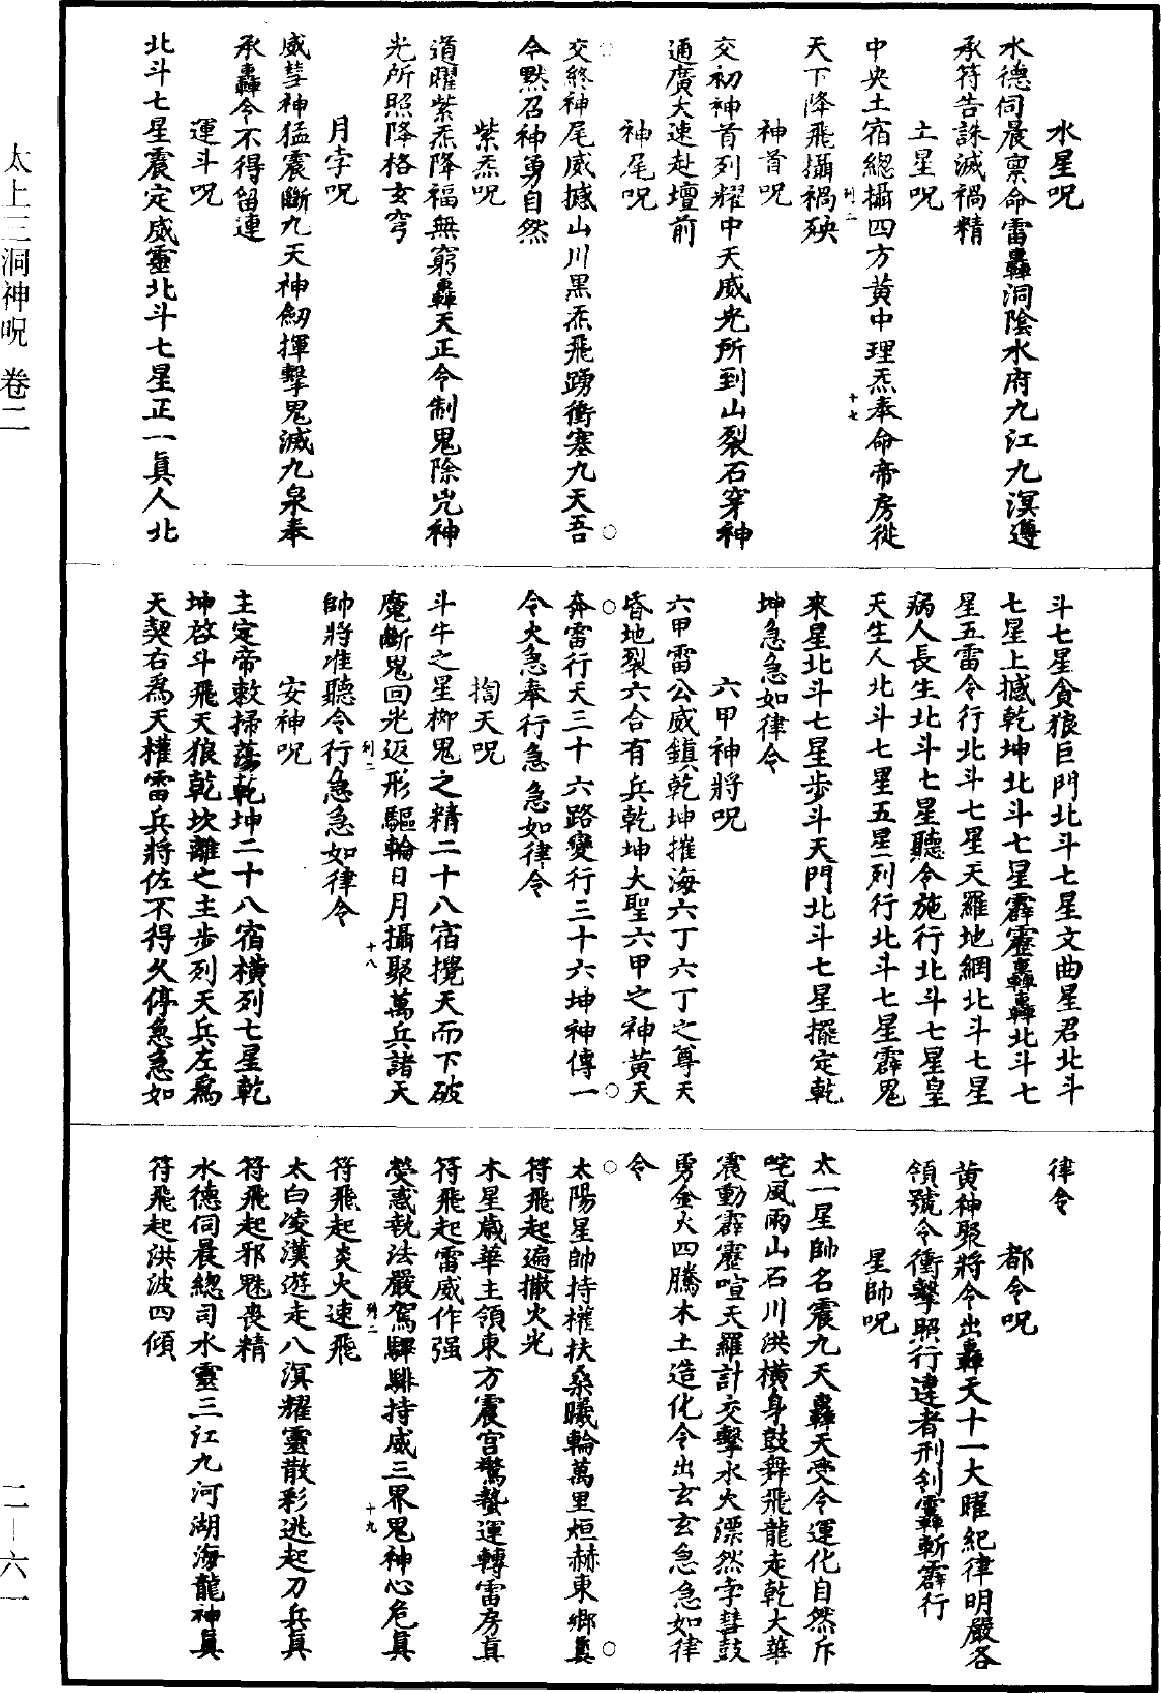 水星呪
水德伺晨禀命雷轟洞陰水府九江九溟遵
承符告誅滅禍精
土星呪
中央土宿總攝四方黃中理炁奉命帝房從
天下降飛攝禍殃
神首呪
交初神首列耀中天威光所到山裂石穿神
通廣大速赴壇前
神尾呪
交終神尾威撼山川黑炁飛踴衝塞九天吾
令默召神勇自然
紫炁呪
道曜紫炁降福無窮轟天正令制鬼除兇神
光所照降格玄穹
月孛呪
威彗神猛震斷九天神劒揮擊鬼滅九泉奉
承轟令不得留連
運斗呪
北斗七星震定威靈北斗七星正一眞人北
斗七星貪狼巨門北斗七星文曲星君北斗
七星上撼乾坤北斗七星霹靂轟轟北斗七
星五雷令行北斗七星天羅地網北斗七星
病人長生北斗七星聽令施行北斗七星皇
天生人北斗七星五星列行北斗七星霹鬼
來星北斗七星步斗天門北斗七星擺定乾
坤急急如律令
六甲神將呪
六甲雷公威鎮乾坤摧海六丁六丁之尊天
昏地裂六合有兵乾坤大聖六甲之神黃天
奔雷行天三十六路變行三十六坤神傳一
令火急奉行急急如律令
掏天呪
斗牛之星柳鬼之精二十八宿攪天而下破
魔斷鬼回光返形驅輪日月攝聚萬兵諸天
帥將准聽令行急急如律令
安神呪
主定帝敕掃蕩乾坤二十八宿橫列七星乾
坤啓斗飛天狼乾坎離之主步列天兵左爲
天契右爲天權雷兵將佐不得久停急急如
律令
都令呪
黃神聚將令出轟天十一大曜紀律明嚴各
領號令衝擊照行違者刑剉轟斬霹行
星帥呪
太一星帥名震九天轟天受令運化自然斥
咤風雨山石川洪橫身鼓舞飛龍走乾大華
震動霹靂喧天羅計交擊水火漂然孛彗鼓
勇金火四騰木土造化令出玄玄急急如律
令
太陽星帥持權扶桑曦輪萬里烜赫東鄉眞
符飛起遍撒火光
木星歲華主領東方震宫驚蟄運轉雷房眞
符飛起雷威作强
熒惑執法嚴駕驛騑持威三界鬼神心危眞
符飛起炎火速飛
太白凌漢遊走八溟耀靈散彩逃起刀兵眞
符飛起邪魅喪精
水德伺晨總司水靈三江九河湖海龍神眞
符飛起洪波四傾
十七
十八
十九
太上三洞神呪 卷二
二—六一